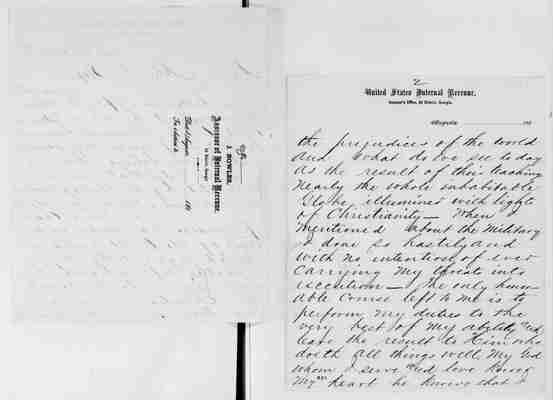 J. BOWLES,
Assessor of Internal Revenue,
2d District, Georgia.
Post: Augusta,
186
2
United States Internal Revenue.
Assessor's Office, 2d District, Georgia.
Augusta, 186
the prejudices of the world
and what do we see to day
as the result of their teaching
nearly the whole inhabitable
Globe illumined with lights
of Christianity — When I
mentioned about the Military
I done so hastily and
with no intention of ever
carrying my threats into
execution — The only honor
able course left to me is to
perform my duties to the
very best of my ability and
leave the result to Him who
doeth all things well My God
whom I serve and love knows
My heart he knows that I